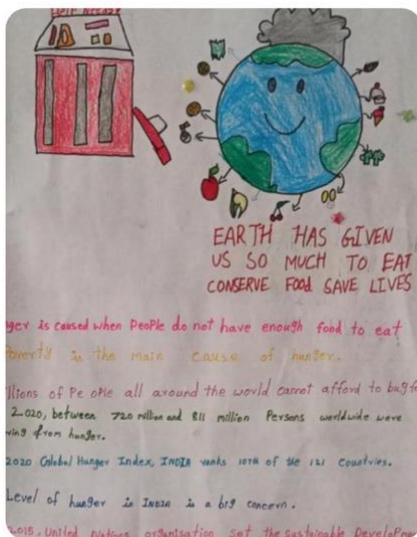 EARTH HAS GIVEN
US SO MUCH TO EAT
CONSERVE Food SAVE LIVES
ger is caused when People do not have enough food to eat
Poverty is the main cause of hunger.
llions of Pe ople all around the world cannot afford to buy fo
2020, between 720 million and 811 million Persons worldwide were
ring from hunger.
2020 Global Hunger Index, INDIA ranks 107th of the 121 Countries.
Level of hunger in INDIA is a big concern.
2015, United Nations organisation set the Sustainable Develop